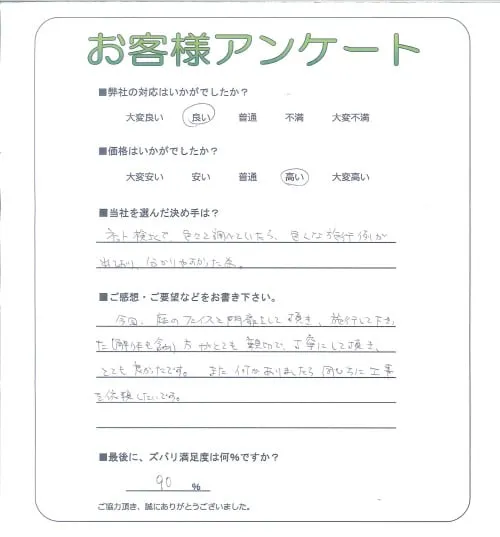 お客様アンケート
■弊社の対応はいかがでしたか？
大変良い 良い 普通 不満 大変不満
■価格はいかがでしたか？
大変安い 安い 普通 高い 大変高い
■当社を選んだ決め手は？
ネット検索で、色々と調べていたら、色々な施行例が
出ており、分かりやすかった為。
■ご感想・ご要望などをお書き下さい。
今回、庭のフェイスと門扉をして頂き、施行して下さ
った(解体も含め)方がとても親切で、丁寧にして頂き、
とても良かったです。また何かありましたら同じように工事
を依頼したいです。
■最後に、ズバリ満足度は何％ですか？
90 ％
ご協力頂き、誠にありがとうございました。